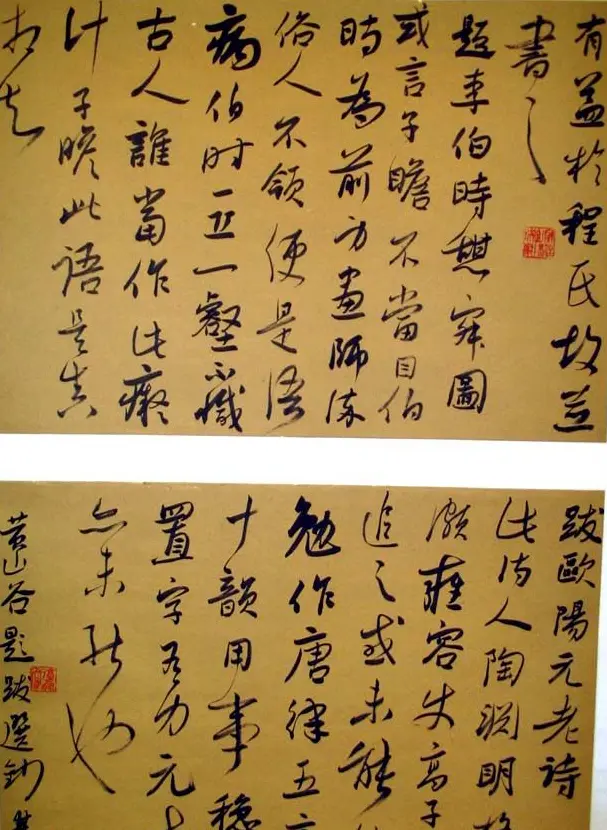 有益於程氏故並
書之
題李伯時憩寂圖
或言子瞻不當目伯
時為前身畫師流
俗人不領便是語
病伯時一丘一壑不減
古人誰當作此癡
計子瞻此語是真
相知
跋歐陽元老詩
此詩入陶淵明格
頗雍容使高子
追之或未能
勉作唐律五言
十韻用事穩
置字有力元
亦未能也
黃山谷題跋選鈔